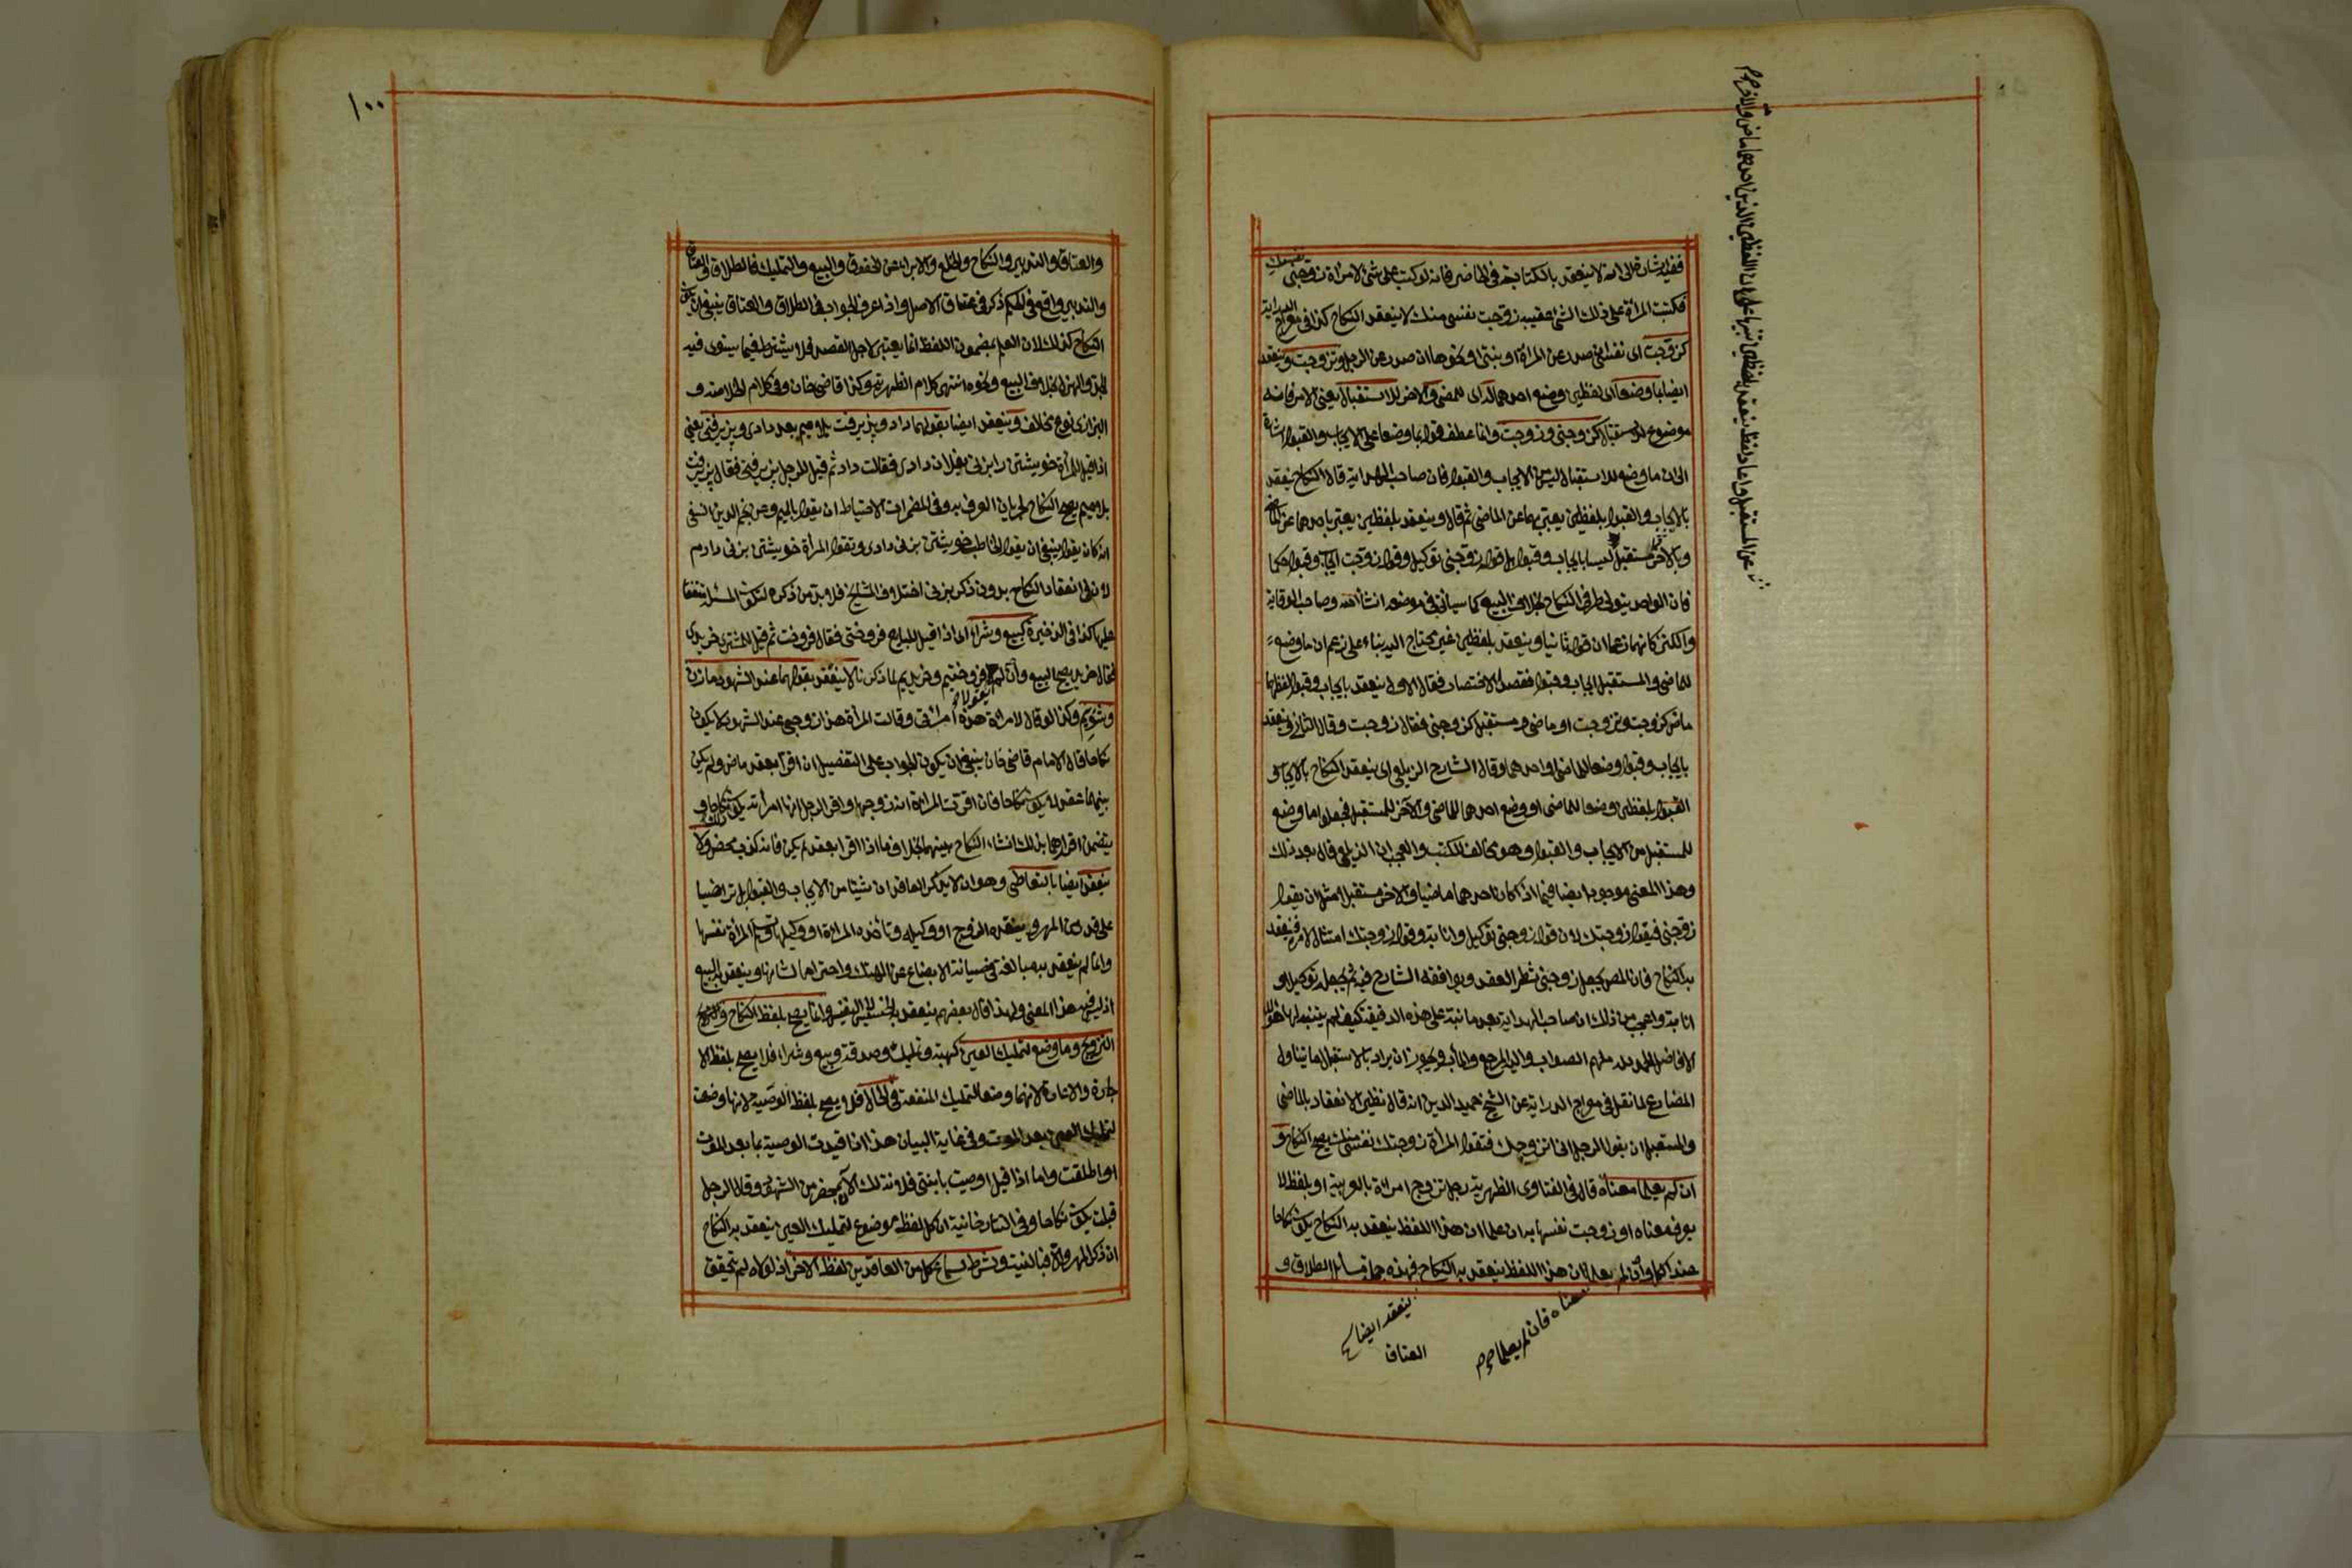 ففيه اشارة الى انه لا ينعقد بالكتابة في الحاضر فانه لو كتب على شئ لامراة زوجيني نفسك
فكتبت المرأة على ذلك الشئ عقيبه زوجت نفسي منك لا ينعقد النكاح كذا في معراج الدراية
كزوجت اى نفسي صدر عن المرأة او بنتي او نحوها ان صدر عن الرجل وتزوجت وينعقد
ايضا بما وضعا اى لفظين وضع احدهما له اى للمضي والاخر للاستقبال يعني الامر فانه
موضوع للاستقبال كزوجني وزوجت وانما عطف قوله بما وضعا على الايجاب والقبول اشارة
الى ان ما وضع للاستقبال ليس من الايجاب والقبول فان صاحب الهداية قال النكاح ينعقد
بالايجاب والقبول بلفظين يعبر بهما عن الماضي ثم قال وينعقد بلفظين يعبر باحدهما عن الماضي
وبالاخر مستقبل ليسا بايجاب وقبول بل قوله زوجني توكيل وقوله زوجت ايجاب وقبول حكما
فان الواحد يتولى طرفي النكاح بخلاف البيع كما سيأتي في موضعه ان شاء الله وصاحب الوقاية
والكنز كانهما زعما ان قوله ثانيا وينعقد بلفظين غير محتاج اليه بناء على زعم ان ما وضع
للماضي والمستقبل ايجاب وقبول فقصدا الاختصار فقال الاول ينعقد بايجاب وقبول لفظهما
ماض كزوجت وتزوجت او ماض ومستقبل كزوجني فقال زوجت وقال الثاني وينعقد
بايجاب وقبول وضعا للماضي او احدهما وقال الشارح الزيلعي اى ينعقد النكاح بالايجاب و
القبول بلفظين وضعا للماضي او وضع احدهما للماضي والآخر للمستقبل فجعلوا ما وضع
للمستقبل من الايجاب والقبول وهو مخالف للكتب والعجب ان الزيلعي قال بعد ذلك
وهذا المعنى موجود ايضا فيما اذا كان احدهما ماضيا والاخر مستقبلا مثل ان يقول
زوجني فيقول زوجتك لان قوله زوجني توكيل وانابة وقوله زوجتك امتثال لامره فينعقد
به النكاح فان المص يجعل زوجني شطر العقد ويوافقه الشارح فيه ثم يجعله توكيلا و
انابة واعجب من ذلك ان صاحب الهداية بعد ما نبه على هذه الدقيقة كيف لم يتنبه لها هؤلاء
الافاضل الحمد لله ملهم الصواب واليه المرجع والمآب ويجوز ان يراد بالاستقبال ما يتناول
المضارع لما نقل في معراج الدراية عن الشيخ حميد الدين انه قال نظير الانعقاد بالماضي
والمستقبل ان يقول الرجل انى اتزوجك فتقول المرأة زوجتك نفسي منك يصح النكاح و
ان لم يعلما معناه قال في الفتاوى الظهيرية رجل تزوج امراة بالعربية او بلفظ لا
يعرف معناه او زوجت نفسها به ان علما ان هذا اللفظ ينعقد به النكاح يكون نكاحا
عند الكل وان لم يعلما ان هذا اللفظ ينعقد به النكاح فهذه جملة مسائل الطلاق و
العتاق
عن المستقبل واعاد لفظ ينعقد بلفظين تنبيها على ان اللفظين الذين احدهما ماض والاخر
معناه فان لم يعلما
ينعقد ايضا
١٠٠
والعتاق والتدبير والنكاح والخلع والابراء عن الحقوق والبيع والتمليك فالطلاق والعتاق
والتدبير واقع في الحكم ذكره في عتاق الاصل واذا عرف الجواب في الطلاق والعتاق ينبغي ان يكون
النكاح كذلك لان العلم بمضمون اللفظ انما يعتبر لاجل القصد فلا يشترط فيما يستوى فيه
الجد والهزل بخلاف البيع ونحوه انتهى كلام الظهيرية وكذا قاضي خان وفي كلام الخلاصة و
البزازى نوع مخالف وينعقد ايضا بقولهما داد وپذيرفت بلا ميم بعد دادى وپذيرفتى يعني
اذا قيل للمرأة خويشتن را بزنى بفلان دادى فقالت داد ثم قيل للرجل پذيرفتى فقال پذيرفت
بلا ميم يصح النكاح لجريان العرف به وفي المضمرات الاحتياط ان يقول بالميم وعن نجم الدين النسفي
انه كان يقول ينبغي ان يقول الخاطب خويشتن بزنى دادى وتقول المرأة خويشتن بزنى دادم
لان في انعقاد النكاح بدون ذكر بزنى اختلاف المشايخ فلا بد من ذكره لتكون المسئلة متفقا
عليها كذا في الذخيرة كبيع وشراء اى اذا قيل للبايع فروختى فقال فروخت ثم قيل للمشترى خريدى
فقال خريد يصح البيع وان لم يقولا فروختيم وخريديم لما ذكرنا لا ينعقد بقولهما عند الشهود ما زن
وشوييم وكذا لو قال لامراة هذه امراتى وقالت المرأة هذا زوجي عند الشهود لا يكون
نكاحا قال الامام قاضي خان ينبغي ان يكون الجواب على التفصيل ان اقرا بعقد ماض ولم يكن
بينهما عقد لا يكون نكاحا وان اقرت المرأة انه زوجها واقر الرجل انها امرأته يكون نكاحا و
يتضمن اقرارهما بذلك انشاء النكاح بينهما بخلاف ما اذا اقرا بعقد لم يكن فانه كذب محض ولا
ينعقد ايضا بالتعاطي وهو ان لا يذكر العاقدان شيئا من الايجاب والقبول بل تراضيا
على قدر من المهر وينقده الزوج او وكيله وتأخذه المرأة او وكيلها وتسلم المرأة نفسها
وانما لم ينعقد به مبالغة في صيانة الابضاع عن الهتك واحتراما لشانها وينعقد به البيع
اذ ليس فيه هذا المعنى ولهذا قال بعضهم ينعقد به الخسيس لا النفيس وانما يصح بلفظ النكاح و
التزويج وما وضع لتمليك العين كهبة وتمليك وصدقة وبيع وشراء فلا يصح بلفظ الا
جارة والاعارة لانهما وضعا لتمليك المنفعة في الحال فلا يصح بلفظ الوصية لانها وضعت
لتمليك العين بعد الموت وفي غاية البيان هذا اذا قيدت الوصية بما بعد الموت
او اطلقت واما اذا قيل اوصيت بابنتى فلانة لك الآن بمحضر من الشهود وقال الرجل
قبلت يكون نكاحا وفي التتارخانية ان كل لفظ موضوع لتمليك العين ينعقد به النكاح
ان ذكر المهر والا فبالنية وشرط سماع كل من العاقدين لفظ الاخر اذ لولاه لم يتحقق